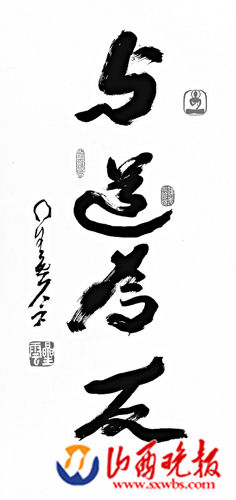 与道为友
星雲
山西晚报
www.sxwbs.com